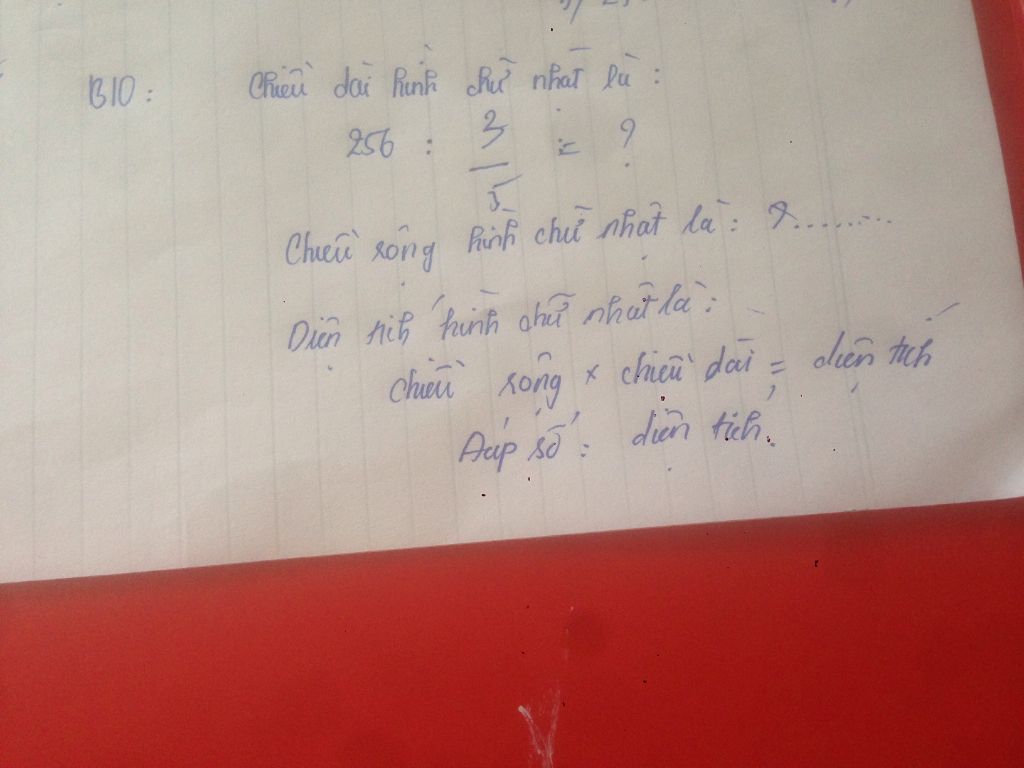 B10: Chiều dài hình chữ nhật là:
256 : 3/5 = ?
Chiều rộng hình chữ nhật là: ?........
Diện tích hình chữ nhật là:
chiều rộng x chiều dài = diện tích
Đáp số: diện tích.